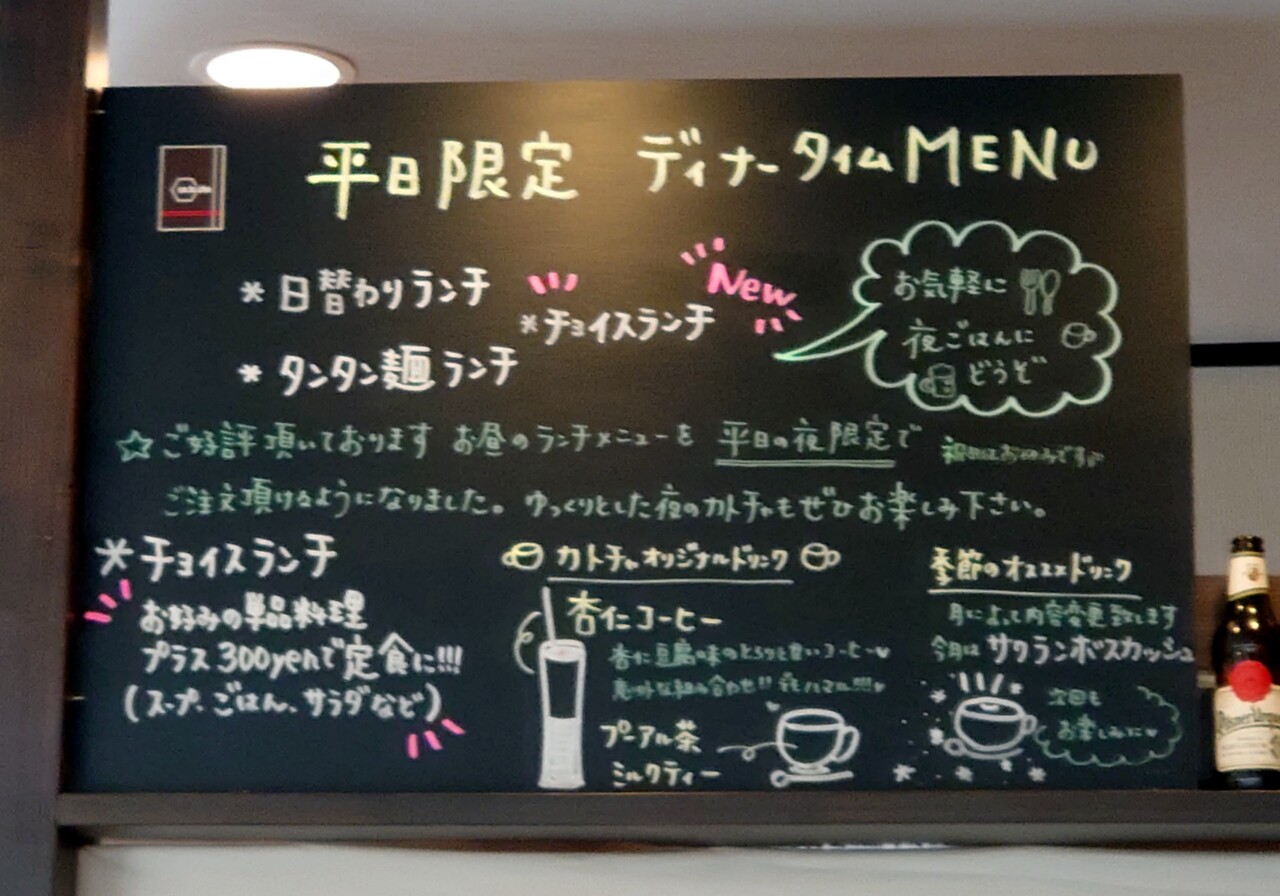 平日限定 ディナータイムMENU
* 日替わりランチ
New
*チョイスランチ
* タンタン麺ランチ
お気軽に
夜ごはんに
どうぞ
☆ご好評頂いております お昼のランチメニューを 平日の夜限定で
祝日はお休みです
ご注文頂けるようになりました。ゆっくりとした夜のカトチャもぜひお楽しみ下さい。
*チョイスランチ
お好みの単品料理
プラス300yenで定食に!!!
(スープ、ごはん、サラダなど)
カトチャオリジナルドリンク
杏仁コーヒー
杏仁豆腐味のとろりと甘いコーヒー♥
意外な組み合わせ!! 夜ハマル!!!♥
プーアル茶
ミルクティー
季節のオススメドリンク
月によって内容変更致します
今月は サクランボスカッシュ
次回も
お楽しみに♥